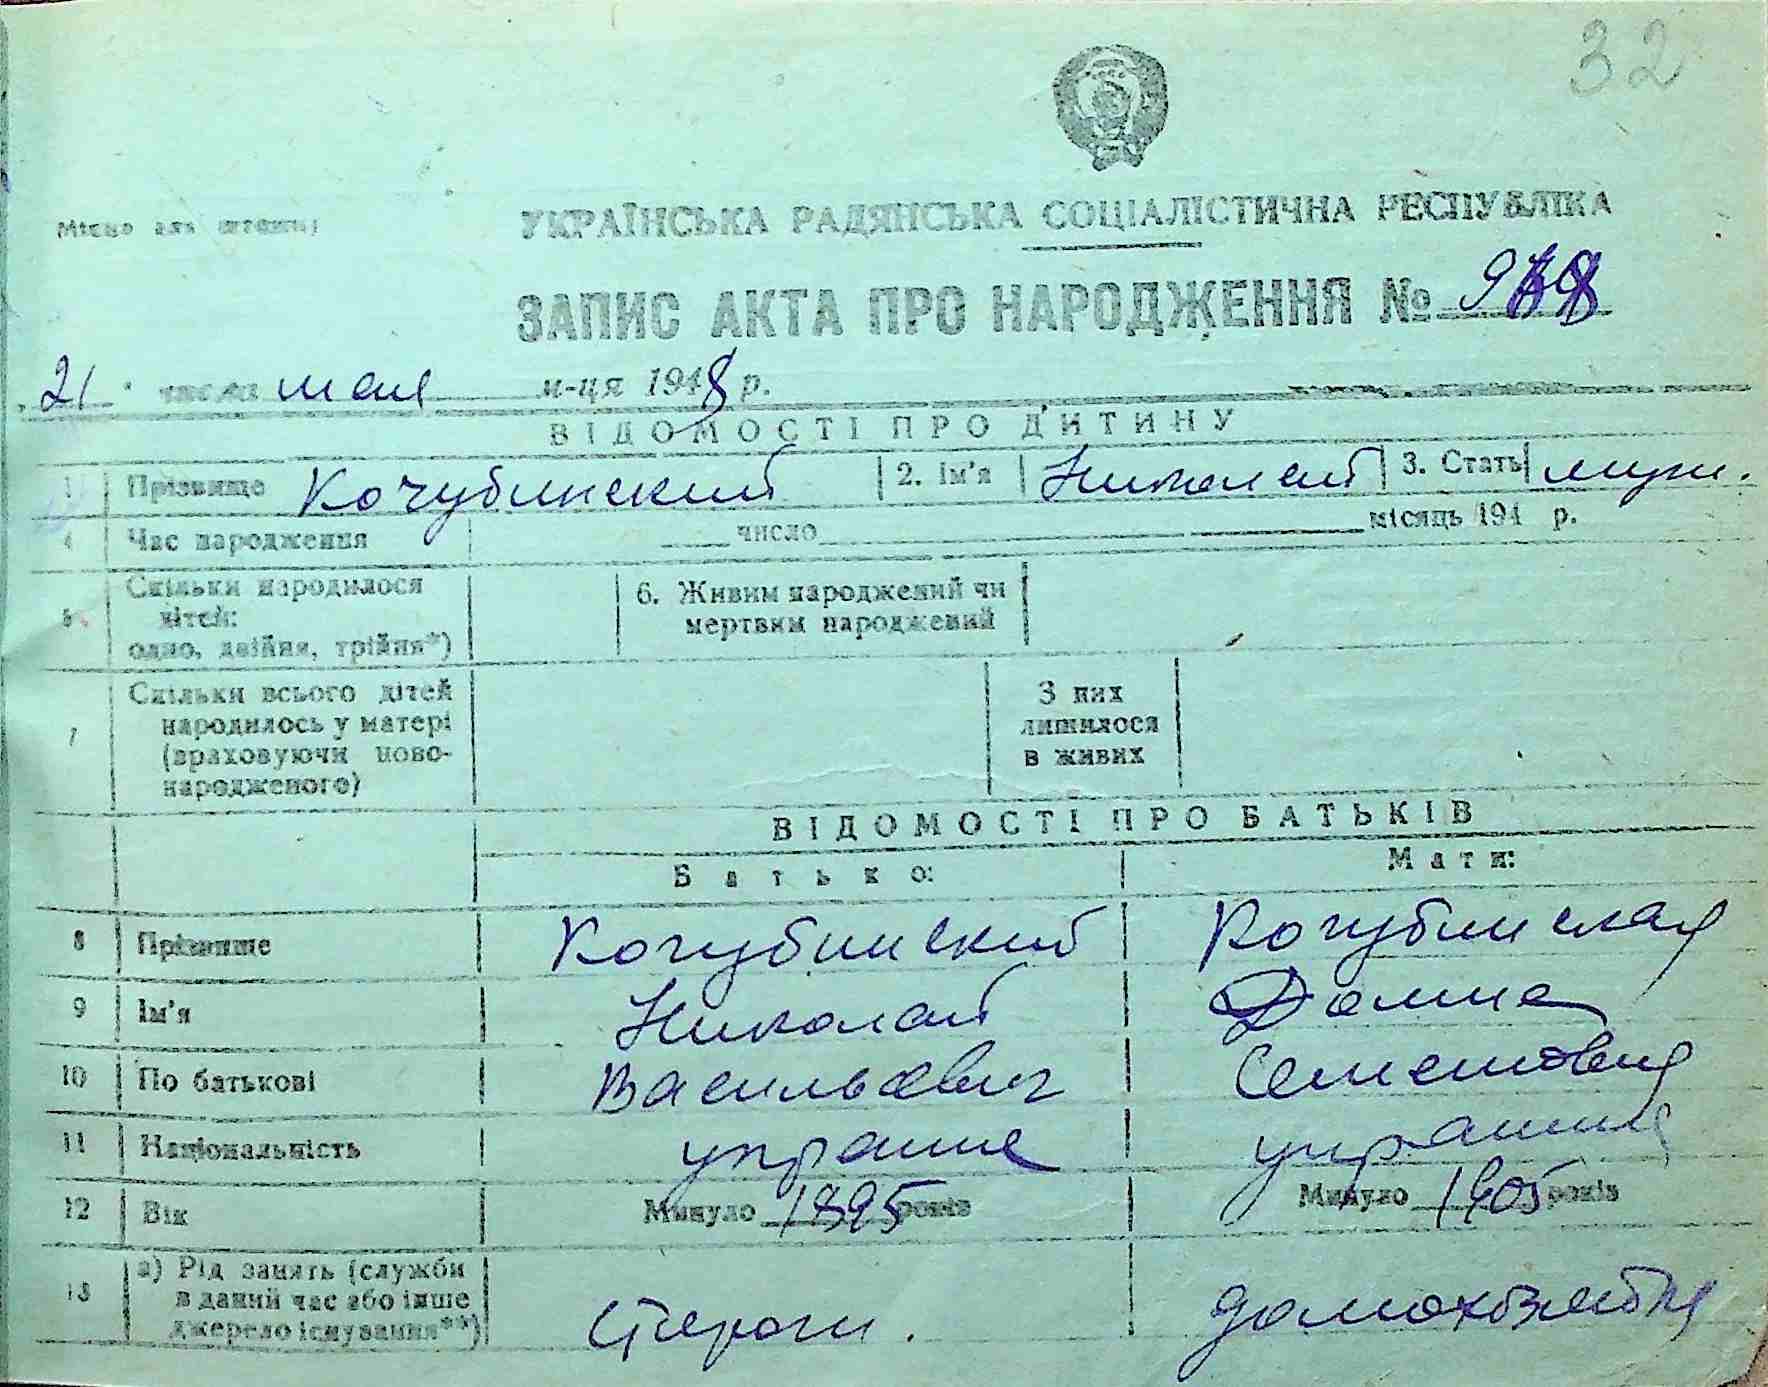 32
Місце для штампу
УКРАЇНСЬКА РАДЯНСЬКА СОЦІАЛІСТИЧНА РЕСПУБЛІКА
ЗАПИС АКТА ПРО НАРОДЖЕННЯ №
21 числа мая м-ця 1948 р.
ВІДОМОСТІ ПРО ДИТИНУ
1 Прізвище Кочубинский 2. Ім'я Николай 3. Стать муж.
4 Час народження число місяць 194 р.
5 Скільки народилося дітей: одно, двійня, трійня*) 6. Живим народжений чи мертвим народжений
7 Скільки всього дітей народилось у матері (враховуючи новонародженого) З них лишилося в живих
ВІДОМОСТІ ПРО БАТЬКІВ
Батько: Мати:
8 Прізвище Кочубинский Кочубинская
9 Ім'я Николай Домна
10 По батькові Васильевич Семеновна
11 Національність украине украинка
12 Вік Минуло 1895 років Минуло 1905 років
13 а) Рід занять (служби в даний час або інше джерело існування**) Сторож. домохозяйка